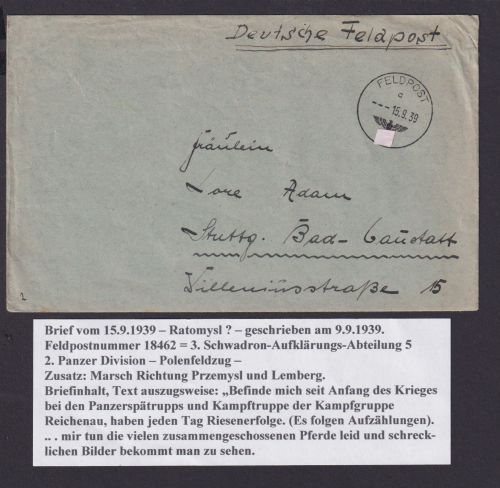 Deutsche Feldpost
FELDPOST
a
--- 15.9.39
Fräulein
Lore Adam
Stuttg. Bad-Canstatt
Villeniusstraße 15
2
Brief vom 15.9.1939 – Ratomysl ? – geschrieben am 9.9.1939.
Feldpostnummer 18462 = 3. Schwadron-Aufklärungs-Abteilung 5
2. Panzer Division – Polenfeldzug –
Zusatz: Marsch Richtung Przemysl und Lemberg.
Briefinhalt, Text auszugsweise: „Befinde mich seit Anfang des Krieges
bei den Panzerspätrupps und Kampftruppe der Kampfgruppe
Reichenau, haben jeden Tag Riesenerfolge. (Es folgen Aufzählungen).
.. . mir tun die vielen zusammengeschossenen Pferde leid und schreck-
lichen Bilder bekommt man zu sehen.